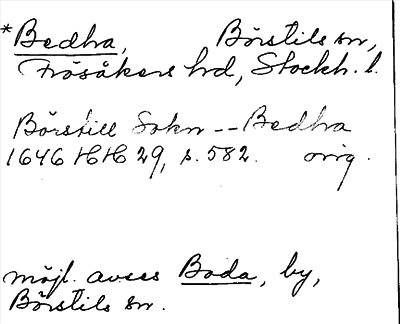 *Bedhra, Börstils sn,
Frösåkers hd, Stockh. l.
Börstill Sokn -- Bedhra
1646 HH 29, s. 582. orig.
möjl. avses Boda, by,
Börstils sn.